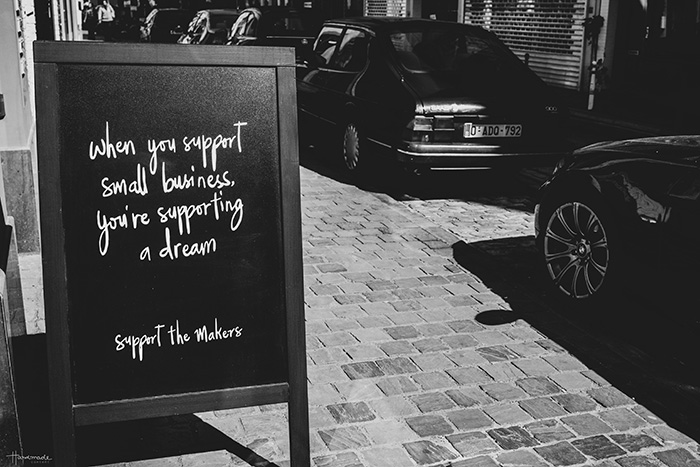 when you support
small business,
you're supporting
a dream
support the Makers
O·ADQ-792
Handmade